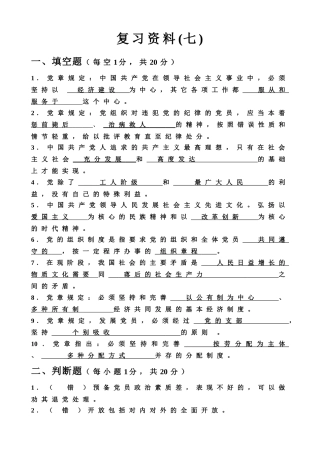 复习资料(七)
一、填空题（每空1分，共20分）
1．党章规定：中国共产党在领导社会主义事业中，必须
坚持以 经济建设 为中心，其它各项工作都 服从和
服务于 这个中心。
2．党章规定：党组织对违犯党的纪律的党员，应当本着
惩前毖后 、 治病救人 的精神，按照错误性质和
情节轻重，给以批评教育直至纪律处分。
3．中国共产党人追求的共产主义最高理想，只有在社会主
义社会 充分发展 和 高度发达 的基础
上才能实现。
4．党除了 工人阶级 和 最广大人民 的利
益，没有自己特殊的利益。
5．中国共产党领导人民发展社会主义先进文化。弘扬以
爱国主义 为核心的民族精神和以 改革创新 为核心
的时代精神。
6．党的组织制度是指要求党的组织和全体党员 共同遵
守的 、按一定程序办事的 组织章程 。
7．在现阶段，我国社会的主要矛盾是 人民日益增长的
物质文化需要 同 落后的社会生产力 之间的矛
盾。
8．党章规定：必须坚持和完善 以公有制为中心 、
多种所有制 经济共同发展的基本经济制度。
9．党章规定：发展党员，必须经过 党的支部 ，
坚持 个别吸收 的原则 。
10．党章指出：必须坚持和完善 按劳分配为主体
、 多种分配方式 并存的分配制度。
二、判断题（每小题1分，共20分）
1．（ 错 ）预备党员政治素质差，表现不好的，可以做
劝其退党处理。
2．（ 错 ）开放包括对内对外的全面开放。